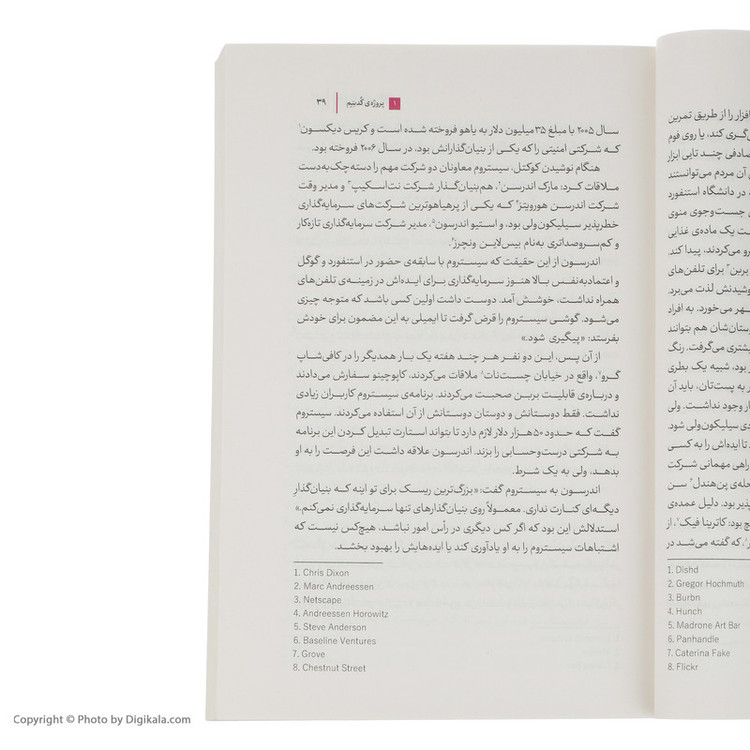 ۱ پروژه‌ی کُدنِیم ۳۹
سال ۲۰۰۵ با مبلغ ۳۵ میلیون دلار به یاهو فروخته شده است و کریس دیکسون۱
که شرکتی امنیتی را که یکی از بنیان‌گذارانش بود، در سال ۲۰۰۶ فروخته بود.
هنگام نوشیدن کوکتل، سیستروم معاونان دو شرکت مهم را دسته‌چک‌به‌دست
ملاقات کرد: مارک اندرسن۲، هم‌بنیان‌گذار شرکت نت‌اسکیپ۳ و مدیر وقت
شرکت اندرسن هورویتز۴ که یکی از پرهیاهوترین شرکت‌های سرمایه‌گذاری
خطرپذیر سیلیکون‌ولی بود، و استیو اندرسون۵، مدیر شرکت سرمایه‌گذاری تازه‌کار
و کم‌سروصداتری به‌نام بیس‌لاین ونچرز۶.
اندرسون از این حقیقت که سیستروم با سابقه‌ی حضور در استنفورد و گوگل
و اعتمادبه‌نفس بالا هنوز سرمایه‌گذاری برای ایده‌اش در زمینه‌ی تلفن‌های
همراه نداشت، خوشش آمد. دوست داشت اولین کسی باشد که متوجه چیزی
می‌شود. گوشی سیستروم را قرض گرفت تا ایمیلی به این مضمون برای خودش
بفرستد: «پیگیری شود.»
از آن پس، این دو نفر هر چند هفته یک بار همدیگر را در کافی‌شاپ
گرو۷، واقع در خیابان چست‌نات۸ ملاقات می‌کردند، کاپوچینو سفارش می‌دادند
و درباره‌ی قابلیت بربن صحبت می‌کردند. برنامه‌ی سیستروم کاربران زیادی
نداشت. فقط دوستانش و دوستان دوستانش از آن استفاده می‌کردند. سیستروم
گفت که حدود ۵۰ هزار دلار لازم دارد تا بتواند استارت تبدیل کردن این برنامه
به شرکتی درست‌وحسابی را بزند. اندرسون علاقه داشت این فرصت را به او
بدهد، ولی به یک شرط.
اندرسون به سیستروم گفت: «بزرگ‌ترین ریسک برای تو اینه که بنیان‌گذار
دیگه‌ای کنارت نداری. معمولاً روی بنیان‌گذارهای تنها سرمایه‌گذاری نمی‌کنم.»
استدلالش این بود که اگر کس دیگری در رأس امور نباشد، هیچ‌کس نیست که
اشتباهات سیستروم را به او یادآوری کند یا ایده‌هایش را بهبود بخشد.
1. Chris Dixon
2. Marc Andreessen
3. Netscape
4. Andreessen Horowitz
5. Steve Anderson
6. Baseline Ventures
7. Grove
8. Chestnut Street
افزار را از طریق تمرین
گری کند، یا روی فوم
صادفی چند تایی ابزار
آن مردم می‌توانستند
در دانشگاه استنفورد
جست‌وجوی منوی
ت یک ماده‌ی غذایی
رو می‌کردند، پیدا کند.
بربن۳ برای تلفن‌های
وشیدنش لذت می‌برد.
هر می‌خورد. به افراد
ستان‌شان هم بتوانند
یشتری می‌گرفت. رنگ
بود، شبیه یک بطری
ر به پست‌تان، باید آن
ار وجود نداشت. ولی
دی سیلیکون‌ولی شود.
تا ایده‌اش را به کسی
راهی مهمانی شرکت
حله‌ی پن‌هندل۶ سن
پذیر بود. دلیل عمده‌ی
چ بود: کاترینا فیک۷، از
ر۸، که گفته می‌شد در
1. Dishd
2. Gregor Hochmuth
3. Burbn
4. Hunch
5. Madrone Art Bar
6. Panhandle
7. Caterina Fake
8. Flickr
Copyright © Photo by Digikala.com